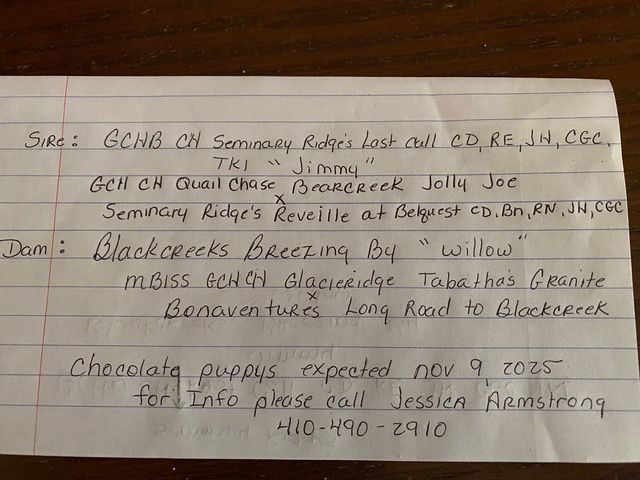 Sire: GCHB CH Seminary Ridge's Last Call CD, RE, JH, CGC,
TKI "Jimmy"
GCH CH Quail Chase Bearcreek Jolly Joe
x
Seminary Ridge's Reveille at Belquest CD, Bn, RN, JH, CGC
Dam: Blackcreeks Breezing By "Willow"
mBISS GCHCH Glacieridge Tabatha's Granite
x
Bonaventures Long Road to Blackcreek
Chocolate puppys expected nov 9, 2025
for Info please call Jessica Armstrong
410-490-2910